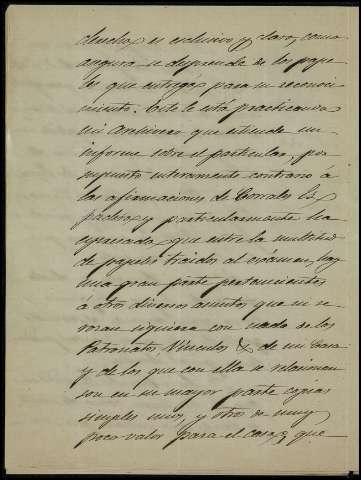 derecho, es esclusivo y claro, como
asegura se desprende de los pape-
les que entregó para su reconoci-
miento. Este le está practicando
sin omisiones que estiende un
informe sobre el particular, por
supuesto enteramente contrario a
las afirmaciones de Corrales la
padre, y particularmente ha
espresado que entre la multitud
de papeles traidos al exámen, hay
una gran parte pertenecientes
á otros diversos asuntos que ni se
rozan siquiera con nada de los
Patronatos, Vinculos & de mi Casa
y de los que con ella se relacionen
son en su mayor parte copias
simples unos, y otros de muy
poco valor para el caso, que